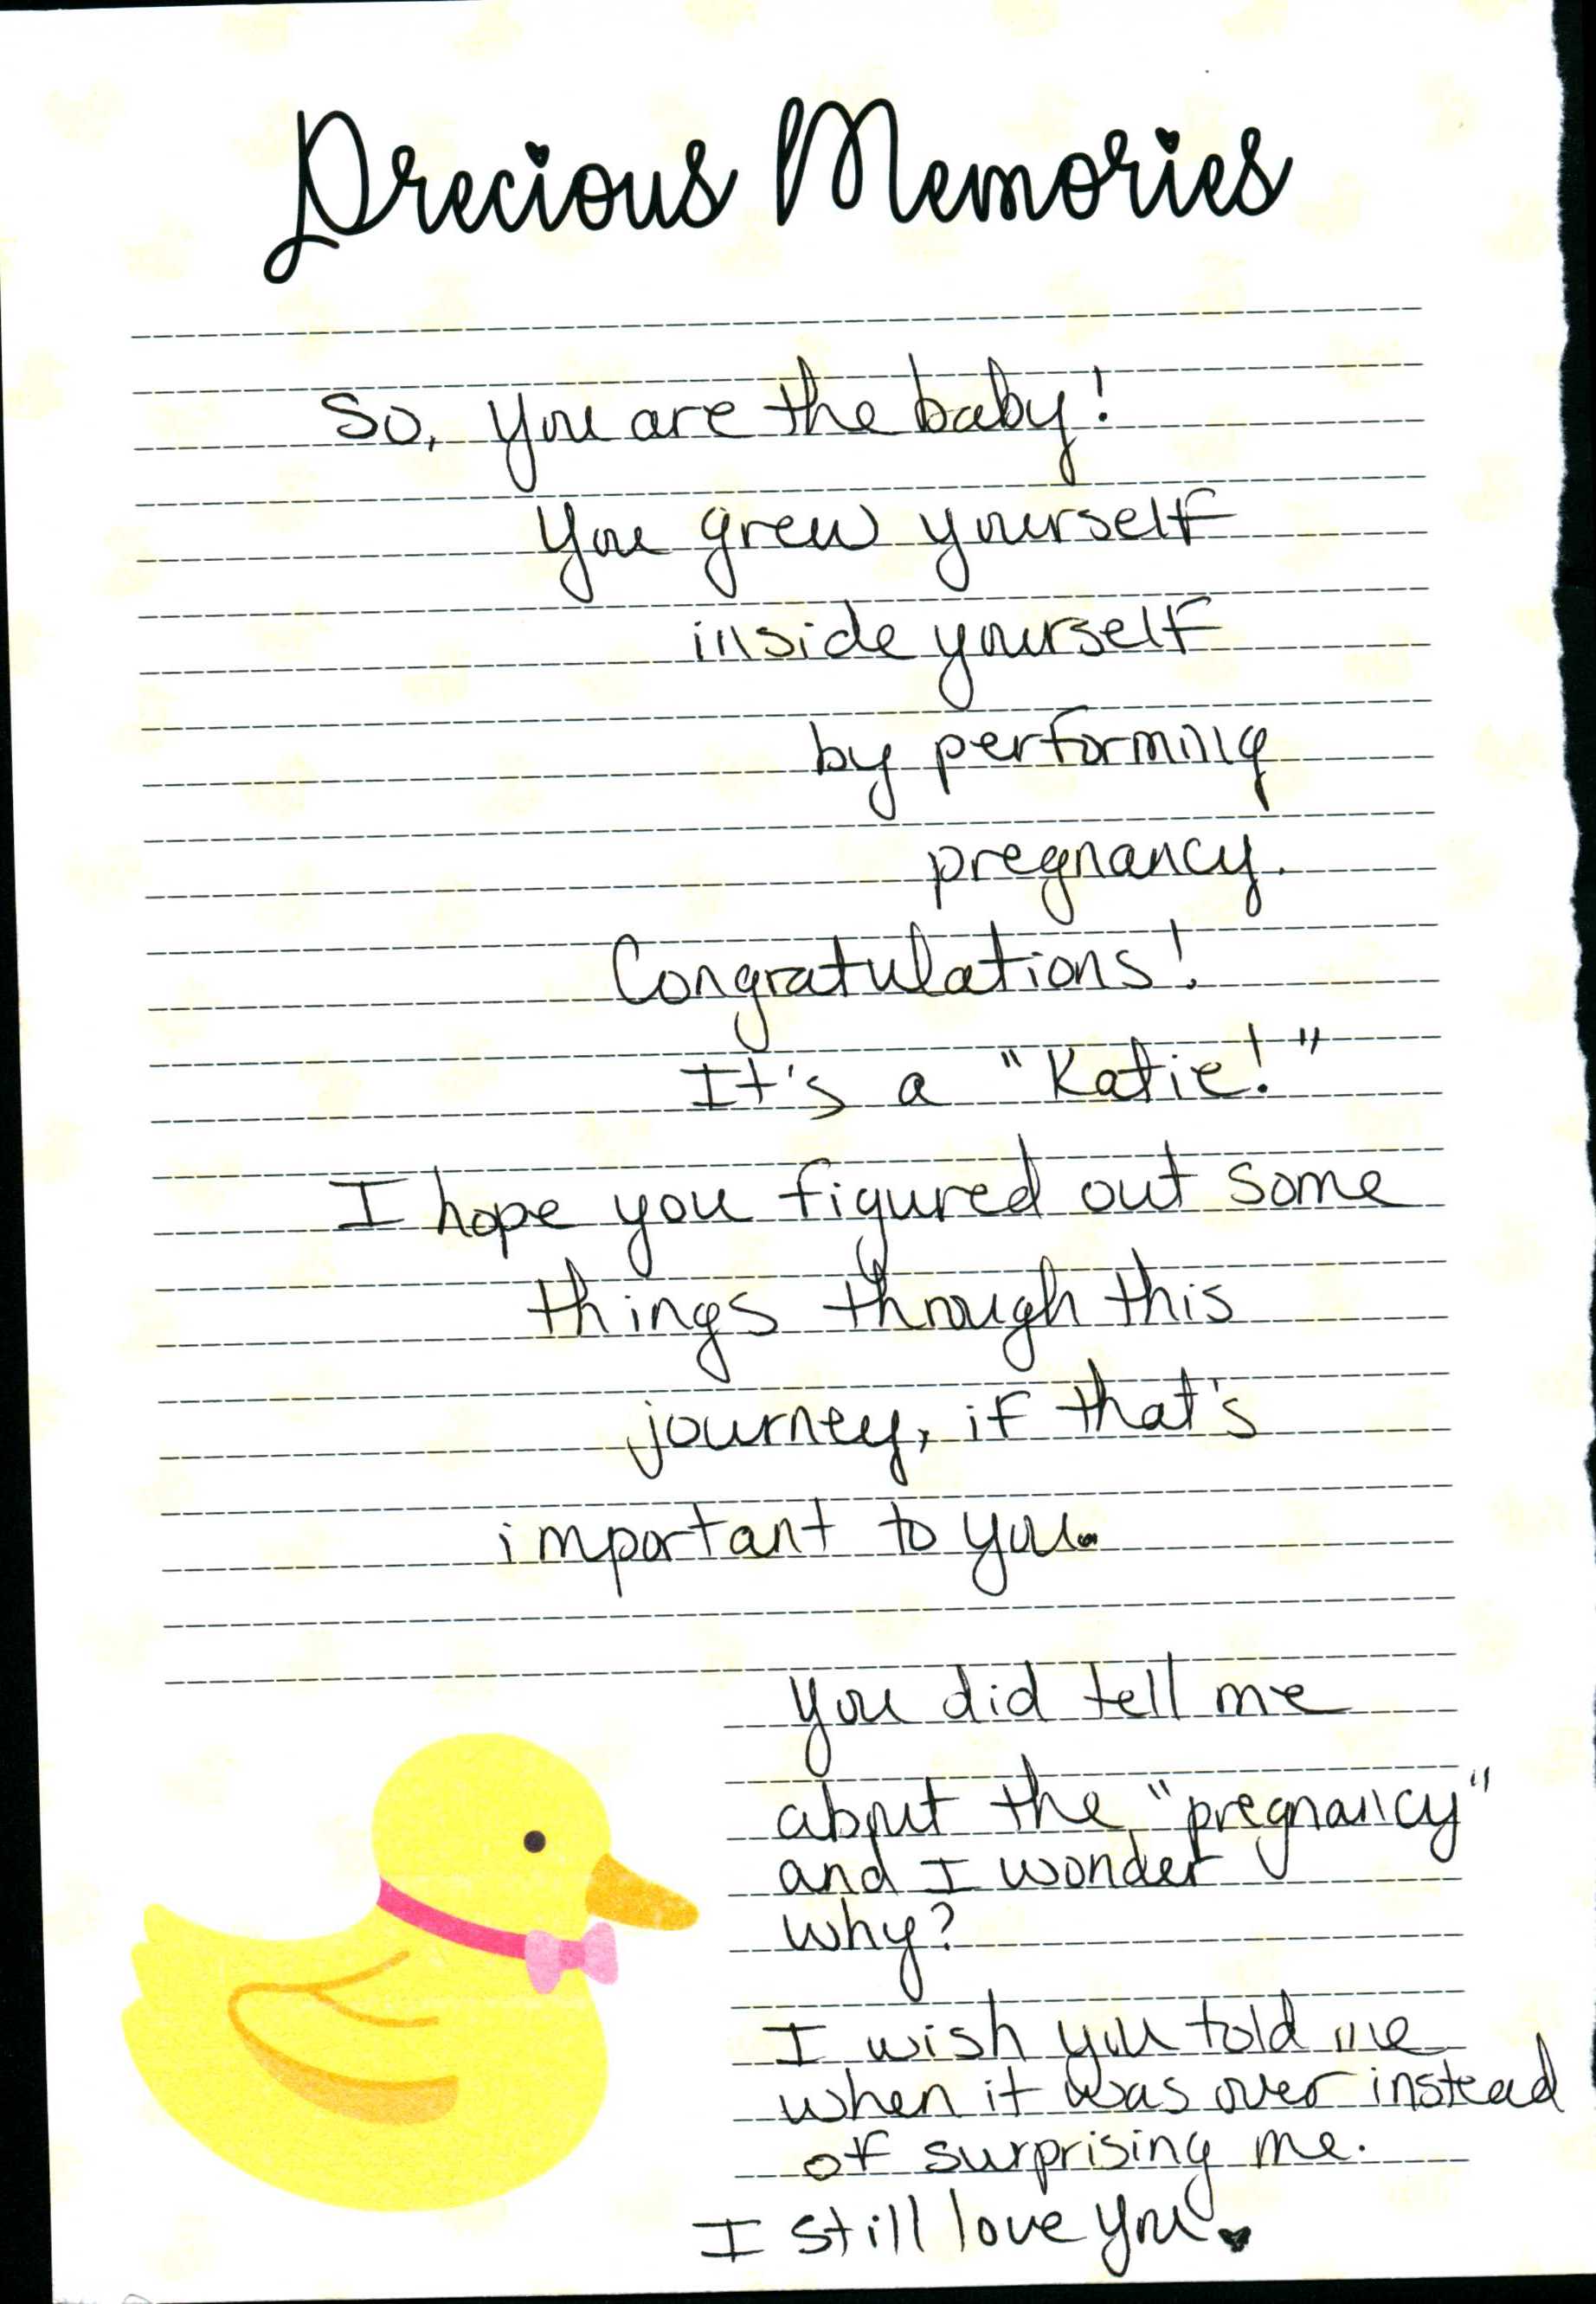 Precious Memories
So, you are the baby!
You grew yourself
inside yourself
by performing
pregnancy.
Congratulations!
It's a "Katie!"
I hope you figured out some
things through this
journey, if that's
important to you.
You did tell me
about the "pregnancy"
and I wonder
why?
I wish you told me
when it was over instead
of surprising me.
I still love you